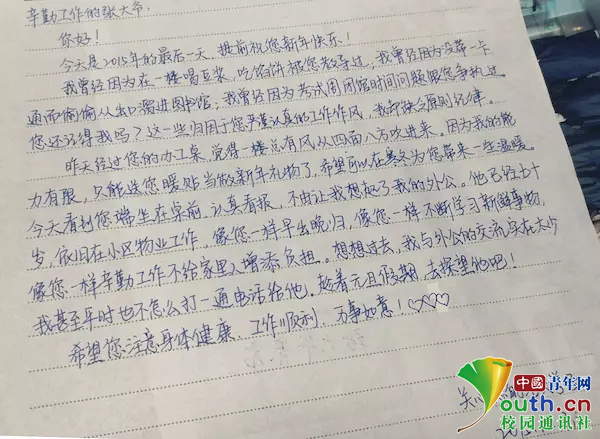 辛勤工作的张大爷:
您好!
今天是2015年的最后一天,提前祝您新年快乐!
我曾经因为在一楼喝豆浆,吃馅饼被您教导过,我曾经因为没带一卡
通而偷偷从出口溜进图书馆;我曾经因为考试周闭馆时间问题跟您争执过。
您还记得我吗?这一些归因于您严谨认真的工作作风,我却缺乏原则纪律。
昨天经过您的办工桌,觉得一楼总有风从四面八方吹进来。因为我的能
力有限,只能送您暖贴当做新年礼物了,希望可以在寒冬为您带来一些温暖。
今天看到您端坐在桌前,认真看报,不由让我想起了我的外公。他已经七十
岁,依旧在小区物业工作,像您一样早出晚归,像您一样不断学习新鲜事物,
像您一样辛勤工作不给家里人增添负担。想想过去,我与外公的交流实在太少
我甚至平时也不怎么打一通电话给他。趁着元旦假期,去探望他吧!
希望您注意身体健康,工作顺利,万事如意!♡♡♡
关心
中國青年网
youth.cn
校园通讯社